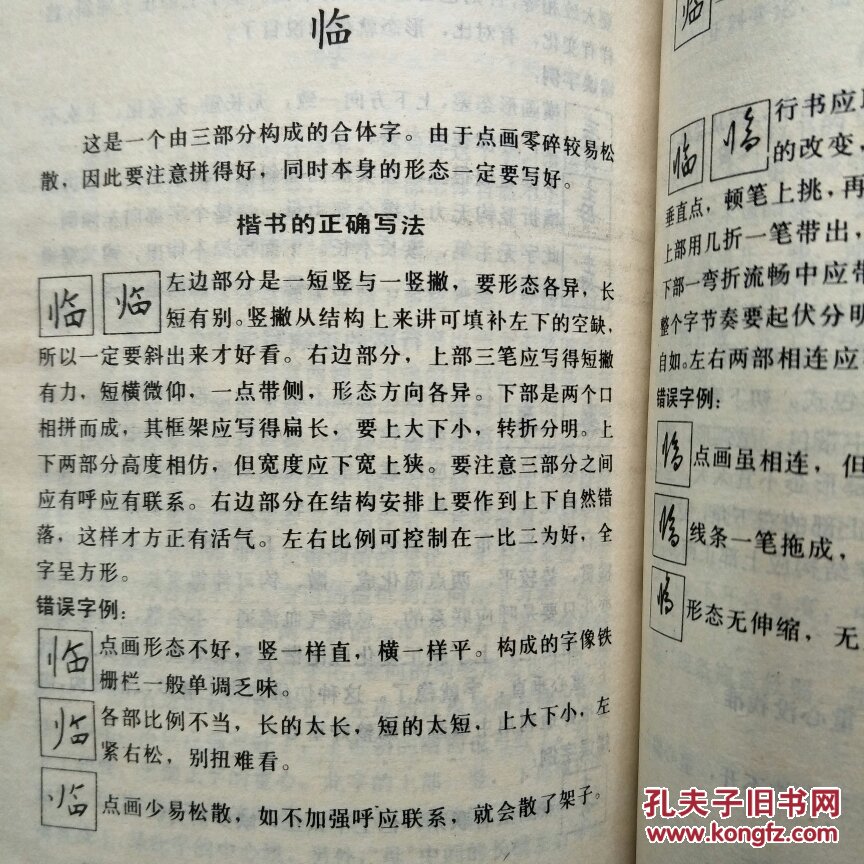 临
这是一个由三部分构成的合体字。由于点画零碎较易松
散，因此要注意拼得好，同时本身的形态一定要写好。
楷书的正确写法
临 临 左边部分是一短竖与一竖撇，要形态各异，长
短有别。竖撇从结构上来讲可填补左下的空缺，
所以一定要斜出来才好看。右边部分，上部三笔应写得短撇
有力，短横微仰，一点带侧，形态方向各异。下部是两个口
相拼而成，其框架应写得扁长，要上大下小，转折分明。上
下两部分高度相仿，但宽度应下宽上狭。要注意三部分之间
应有呼应有联系。右边部分在结构安排上要作到上下自然错
落，这样才方正有活气。左右比例可控制在一比二为好，全
字呈方形。
错误字例：
临 点画形态不好，竖一样直，横一样平。构成的字像铁
栅栏一般单调乏味。
临 各部比例不当，长的太长，短的太短，上大下小，左
紧右松，别扭难看。
临 点画少易松散，如不加强呼应联系，就会散了架子。
临
临 临 行书应
的改变，
垂直点，顿笔上挑，再
上部用几折一笔带出，
下部一弯折流畅中应带
整个字节奏要起伏分明
自如。左右两部相连应
错误字例：
临 点画虽相连，但
临 线条一笔拖成，
临 形态无伸缩，无
孔夫子旧书网
www.kongfz.com